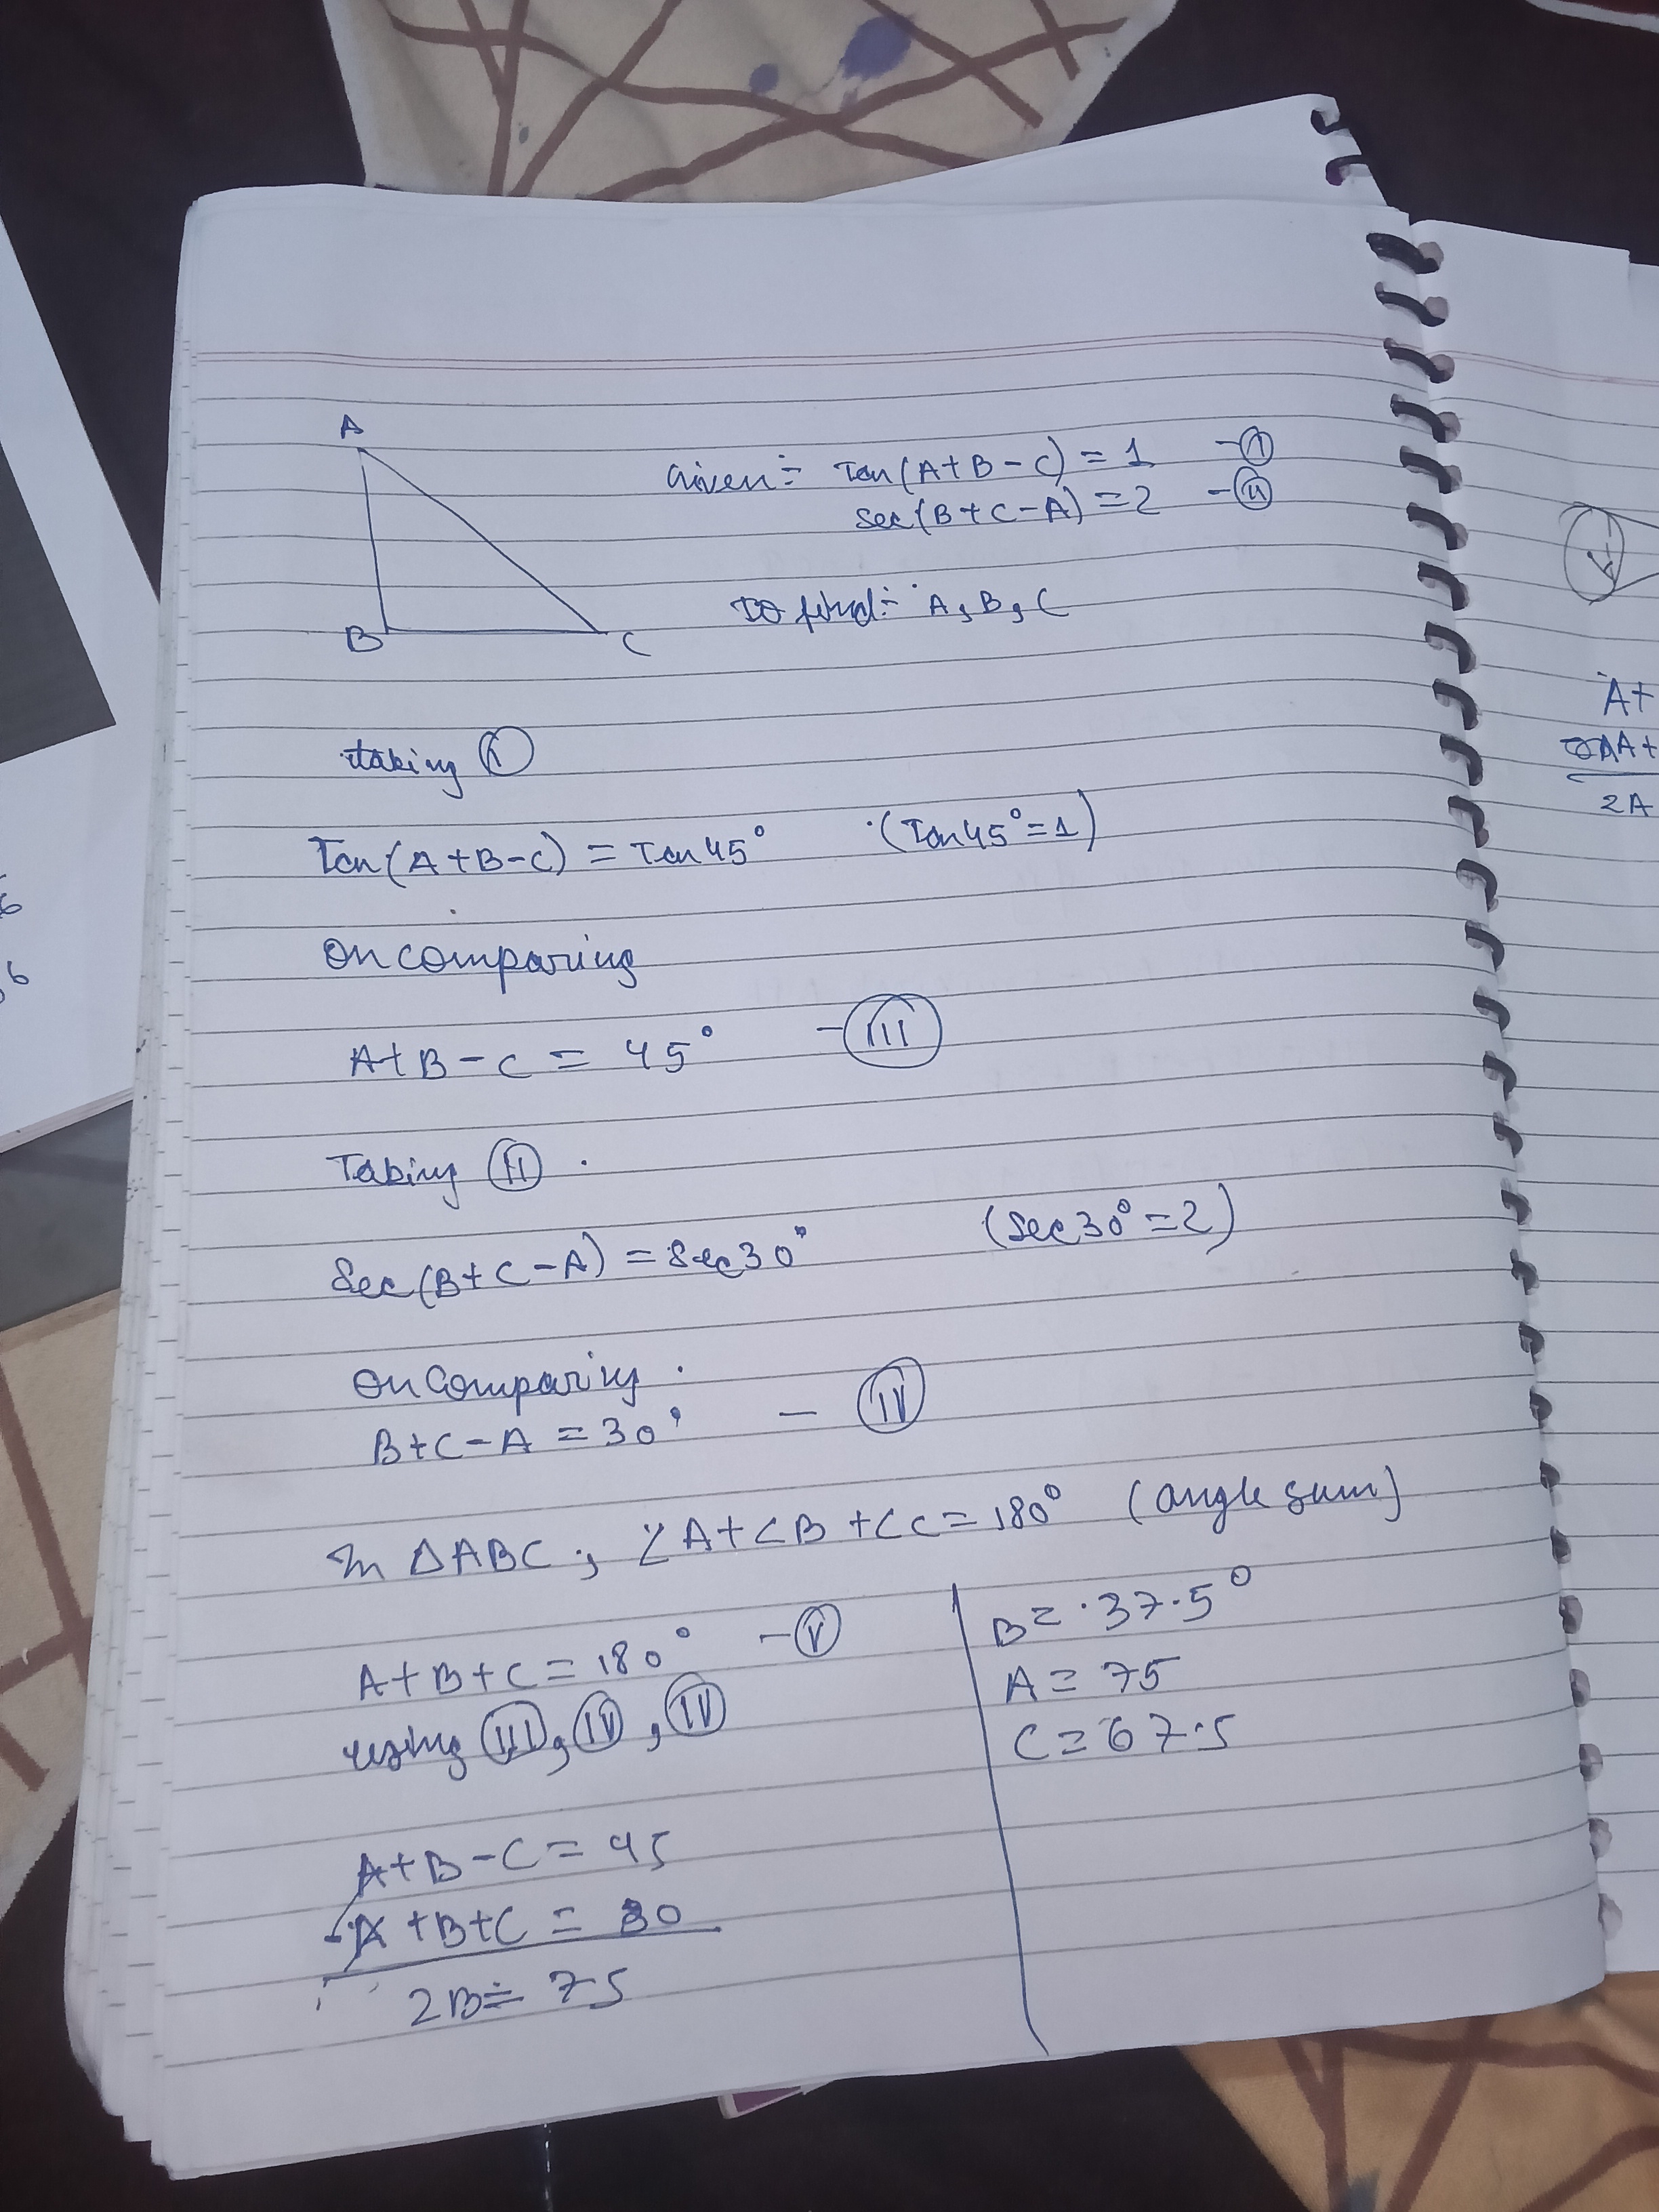 A
B
C
Given:- Tan(A+B-C) = 1 -(I)
sec(B+C-A) = 2 -(II)
To find:- A, B, C
taking (I)
Tan(A+B-C) = Tan 45° (Tan45°=1)
On comparing
A+B-C = 45° -(III)
Taking (II)
Sec(B+C-A) = Sec30° (Sec30°=2)
On Comparing
B+C-A = 30° - (IV)
In ΔABC, ∠A+∠B+∠C = 180° (angle sum)
A+B+C = 180° -(V)
using (III), (IV), (IV)
A+B-C = 45
-A+B+C = 30
2B = 75
B = 37.5°
A = 75
C = 67.5
A+
A+
2A
6
6